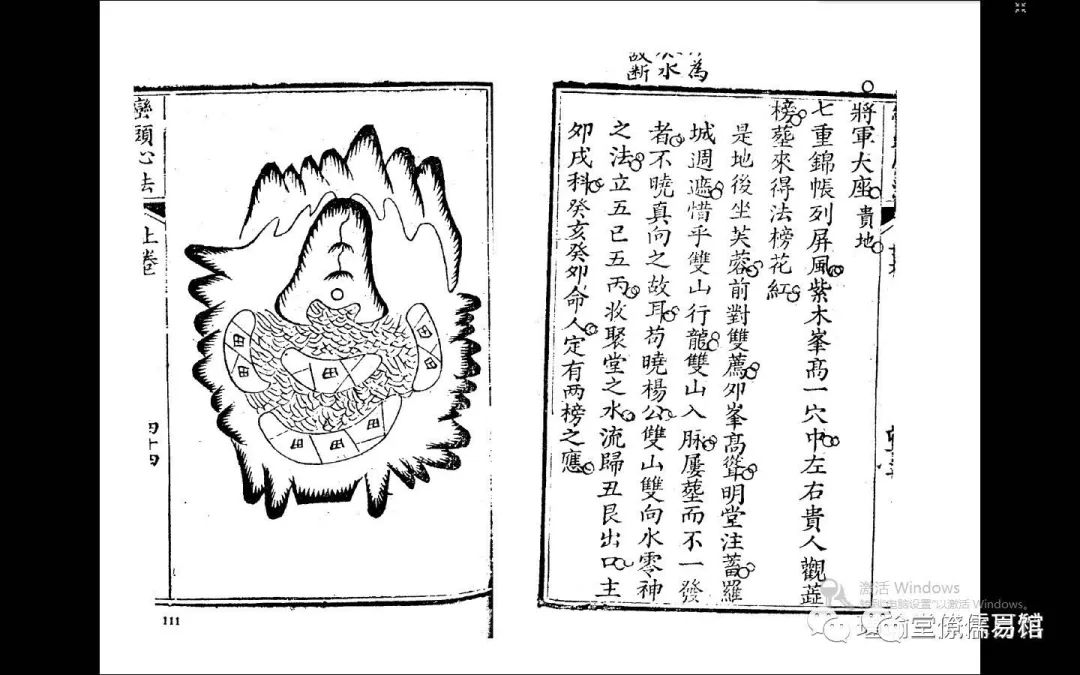 為
水
故断
將軍大座 貴地
七重錦帳列屏風紫木峯髙一穴中左右貴人觀蓝
榜塟來得法榜花紅
是地後坐芙蓉前對雙薦夘峯髙聳明堂注蓄羅
城週遮惜乎雙山行龍雙山入脉屢塟而不一發
者不曉真向之故耳苟曉楊公雙山雙向水零神
之法立五巳五丙收聚堂之水流歸丑艮出口主
夘戌科癸亥癸夘命人定有两榜之應
巒頭心法
上卷
四十四
田
田
田
田
田
田
田
田
111
激活 Windows
转到"电脑设置"以激活 Windows。
堂僚儒易馆